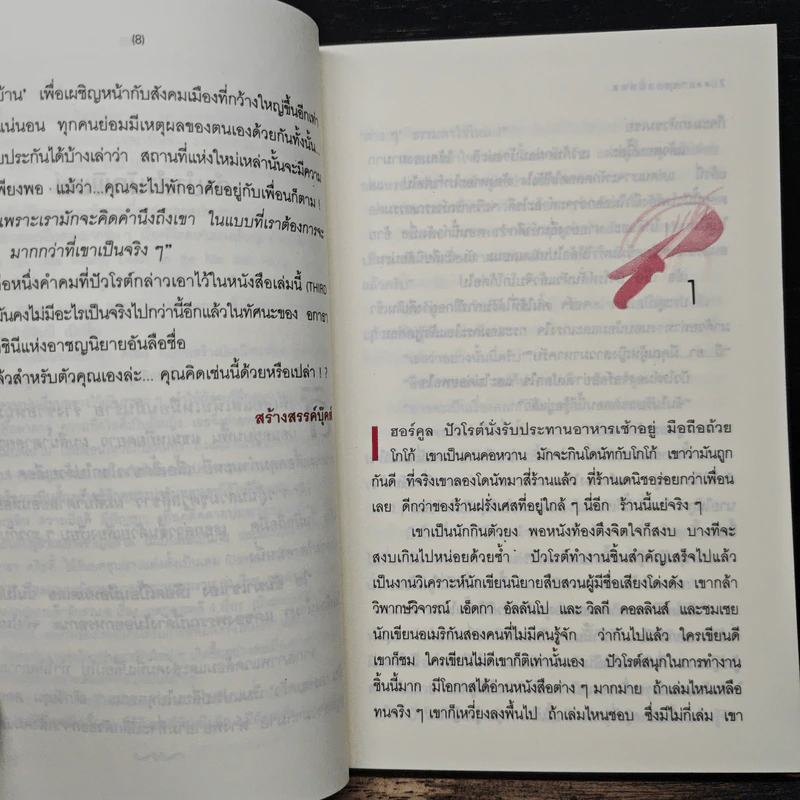 (8)
บ้าน' เพื่อเผชิญหน้ากับสังคมเมืองที่กว้างใหญ่ขึ้นอีกเท่า
แน่นอน ทุกคนย่อมมีเหตุผลของตนเองด้วยกันทั้งนั้น...
ประกันได้บ้างเล่าว่า สถานที่แห่งใหม่เหล่านั้นจะมีความ
เพียงพอ แม้ว่า...คุณจะไปพักอาศัยอยู่กับเพื่อนก็ตาม !
เพราะเรามักจะคิดคำนึงถึงเขา ในแบบที่เราต้องการจะ
มากกว่าที่เขาเป็นจริง ๆ"
หนึ่งคำคมที่ปัวโรต์กล่าวเอาไว้ในหนังสือเล่มนี้ (THIRD
มันคงไม่มีอะไรเป็นจริงไปกว่านี้อีกแล้วในทัศนะของ อกาธา
ชินีแห่งอาชญนิยายอันลือชื่อ
แล้วสำหรับตัวคุณเองล่ะ... คุณคิดเช่นนี้ด้วยหรือเปล่า ! ?
สร้างสรรค์บุ๊คส์
1
ฮอร์คูล ปัวโรต์นั่งรับประทานอาหารเช้าอยู่ มือถือถ้วย
โกโก้ เขาเป็นคนคอหวาน มักจะกินโดนัทกับโกโก้ เขาว่ามันถูก
กันดี ที่จริงเขาลองโดนัทมาสี่ร้านแล้ว ที่ร้านเดนิชอร่อยกว่าเพื่อน
เลย ดีกว่าของร้านฝรั่งเศสที่อยู่ใกล้ ๆ นี่อีก ร้านนี้แย่จริง ๆ
เขาเป็นนักกินตัวยง พอหนังท้องตึงจิตใจก็สงบ บางทีจะ
สงบเกินไปหน่อยด้วยซ้ำ ปัวโรต์ทำงานชิ้นสำคัญเสร็จไปแล้ว
เป็นงานวิเคราะห์นักเขียนนิยายสืบสวนผู้มีชื่อเสียงโด่งดัง เขากล้า
วิพากษ์วิจารณ์ เอ็ดกา อัลลันโป และ วิลกี คอลลินส์ และชมเชย
นักเขียนอเมริกันสองคนที่ไม่มีคนรู้จัก ว่ากันไปแล้ว ใครเขียนดี
เขาก็ชม ใครเขียนไม่ดีเขาก็ติเท่านั้นเอง ปัวโรต์สนุกในการทำงาน
ชิ้นนี้มาก มีโอกาสได้อ่านหนังสือต่าง ๆ มากมาย ถ้าเล่มไหนเหลือ
ทนจริง ๆ เขาก็เหวี่ยงลงพื้นไป ถ้าเล่มไหนชอบ ซึ่งมีไม่กี่เล่ม เขา